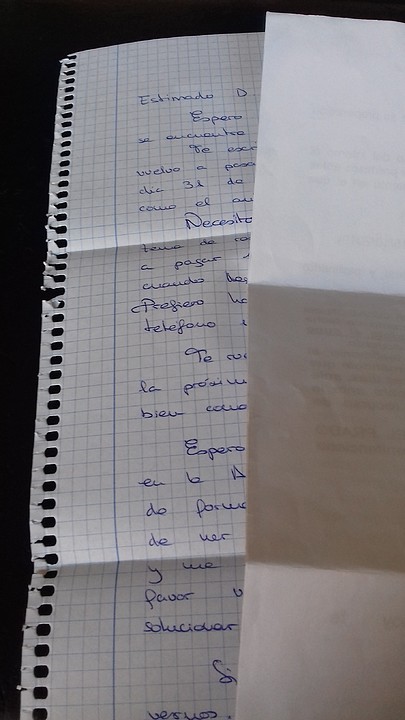 Estimado D
Espero
se encuentre
Te esc
vuelvo a pas
día 31 de
como el au
Necesito
tema de co
a pagar
cuando
Prefiero ha
teléfono
Te
la próxim
bien como
Espero
en la A
de forma
de ver
y me
favor v
solucionar
Si
vernos.